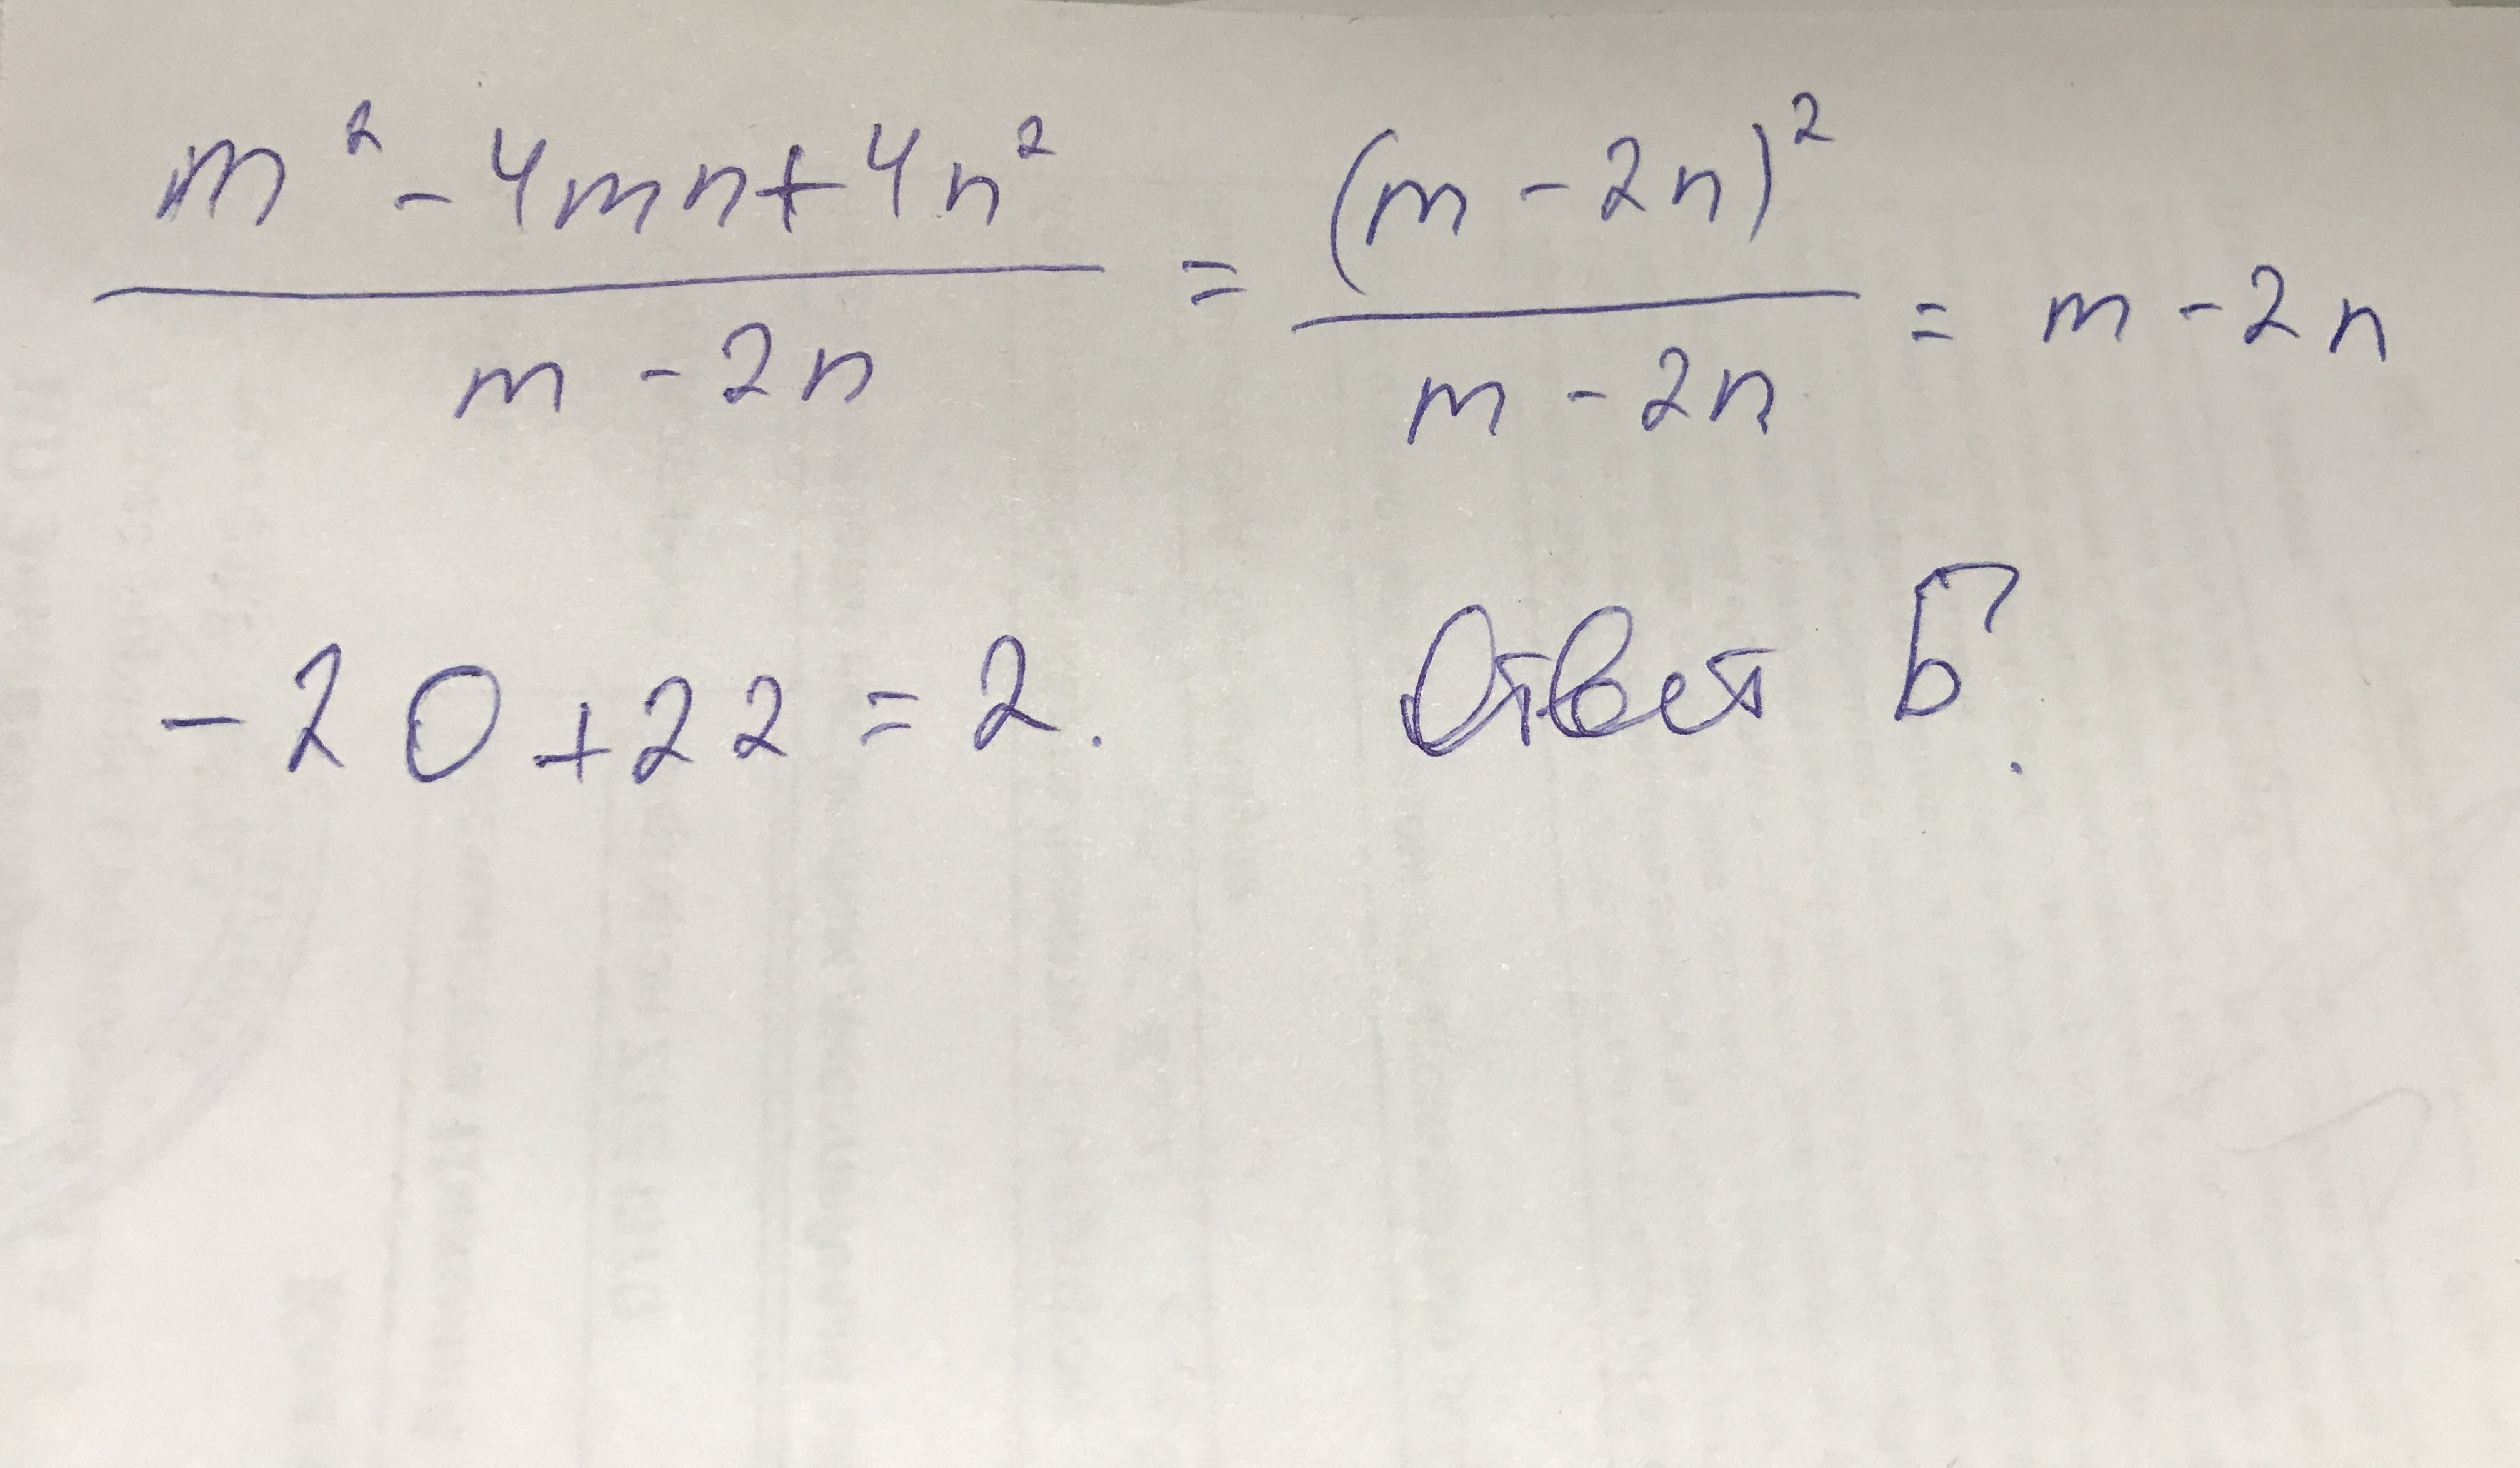 m² - 4mn + 4n² / m - 2n = (m - 2n)² / m - 2n = m - 2n
-20 + 22 = 2. Ответ Б.